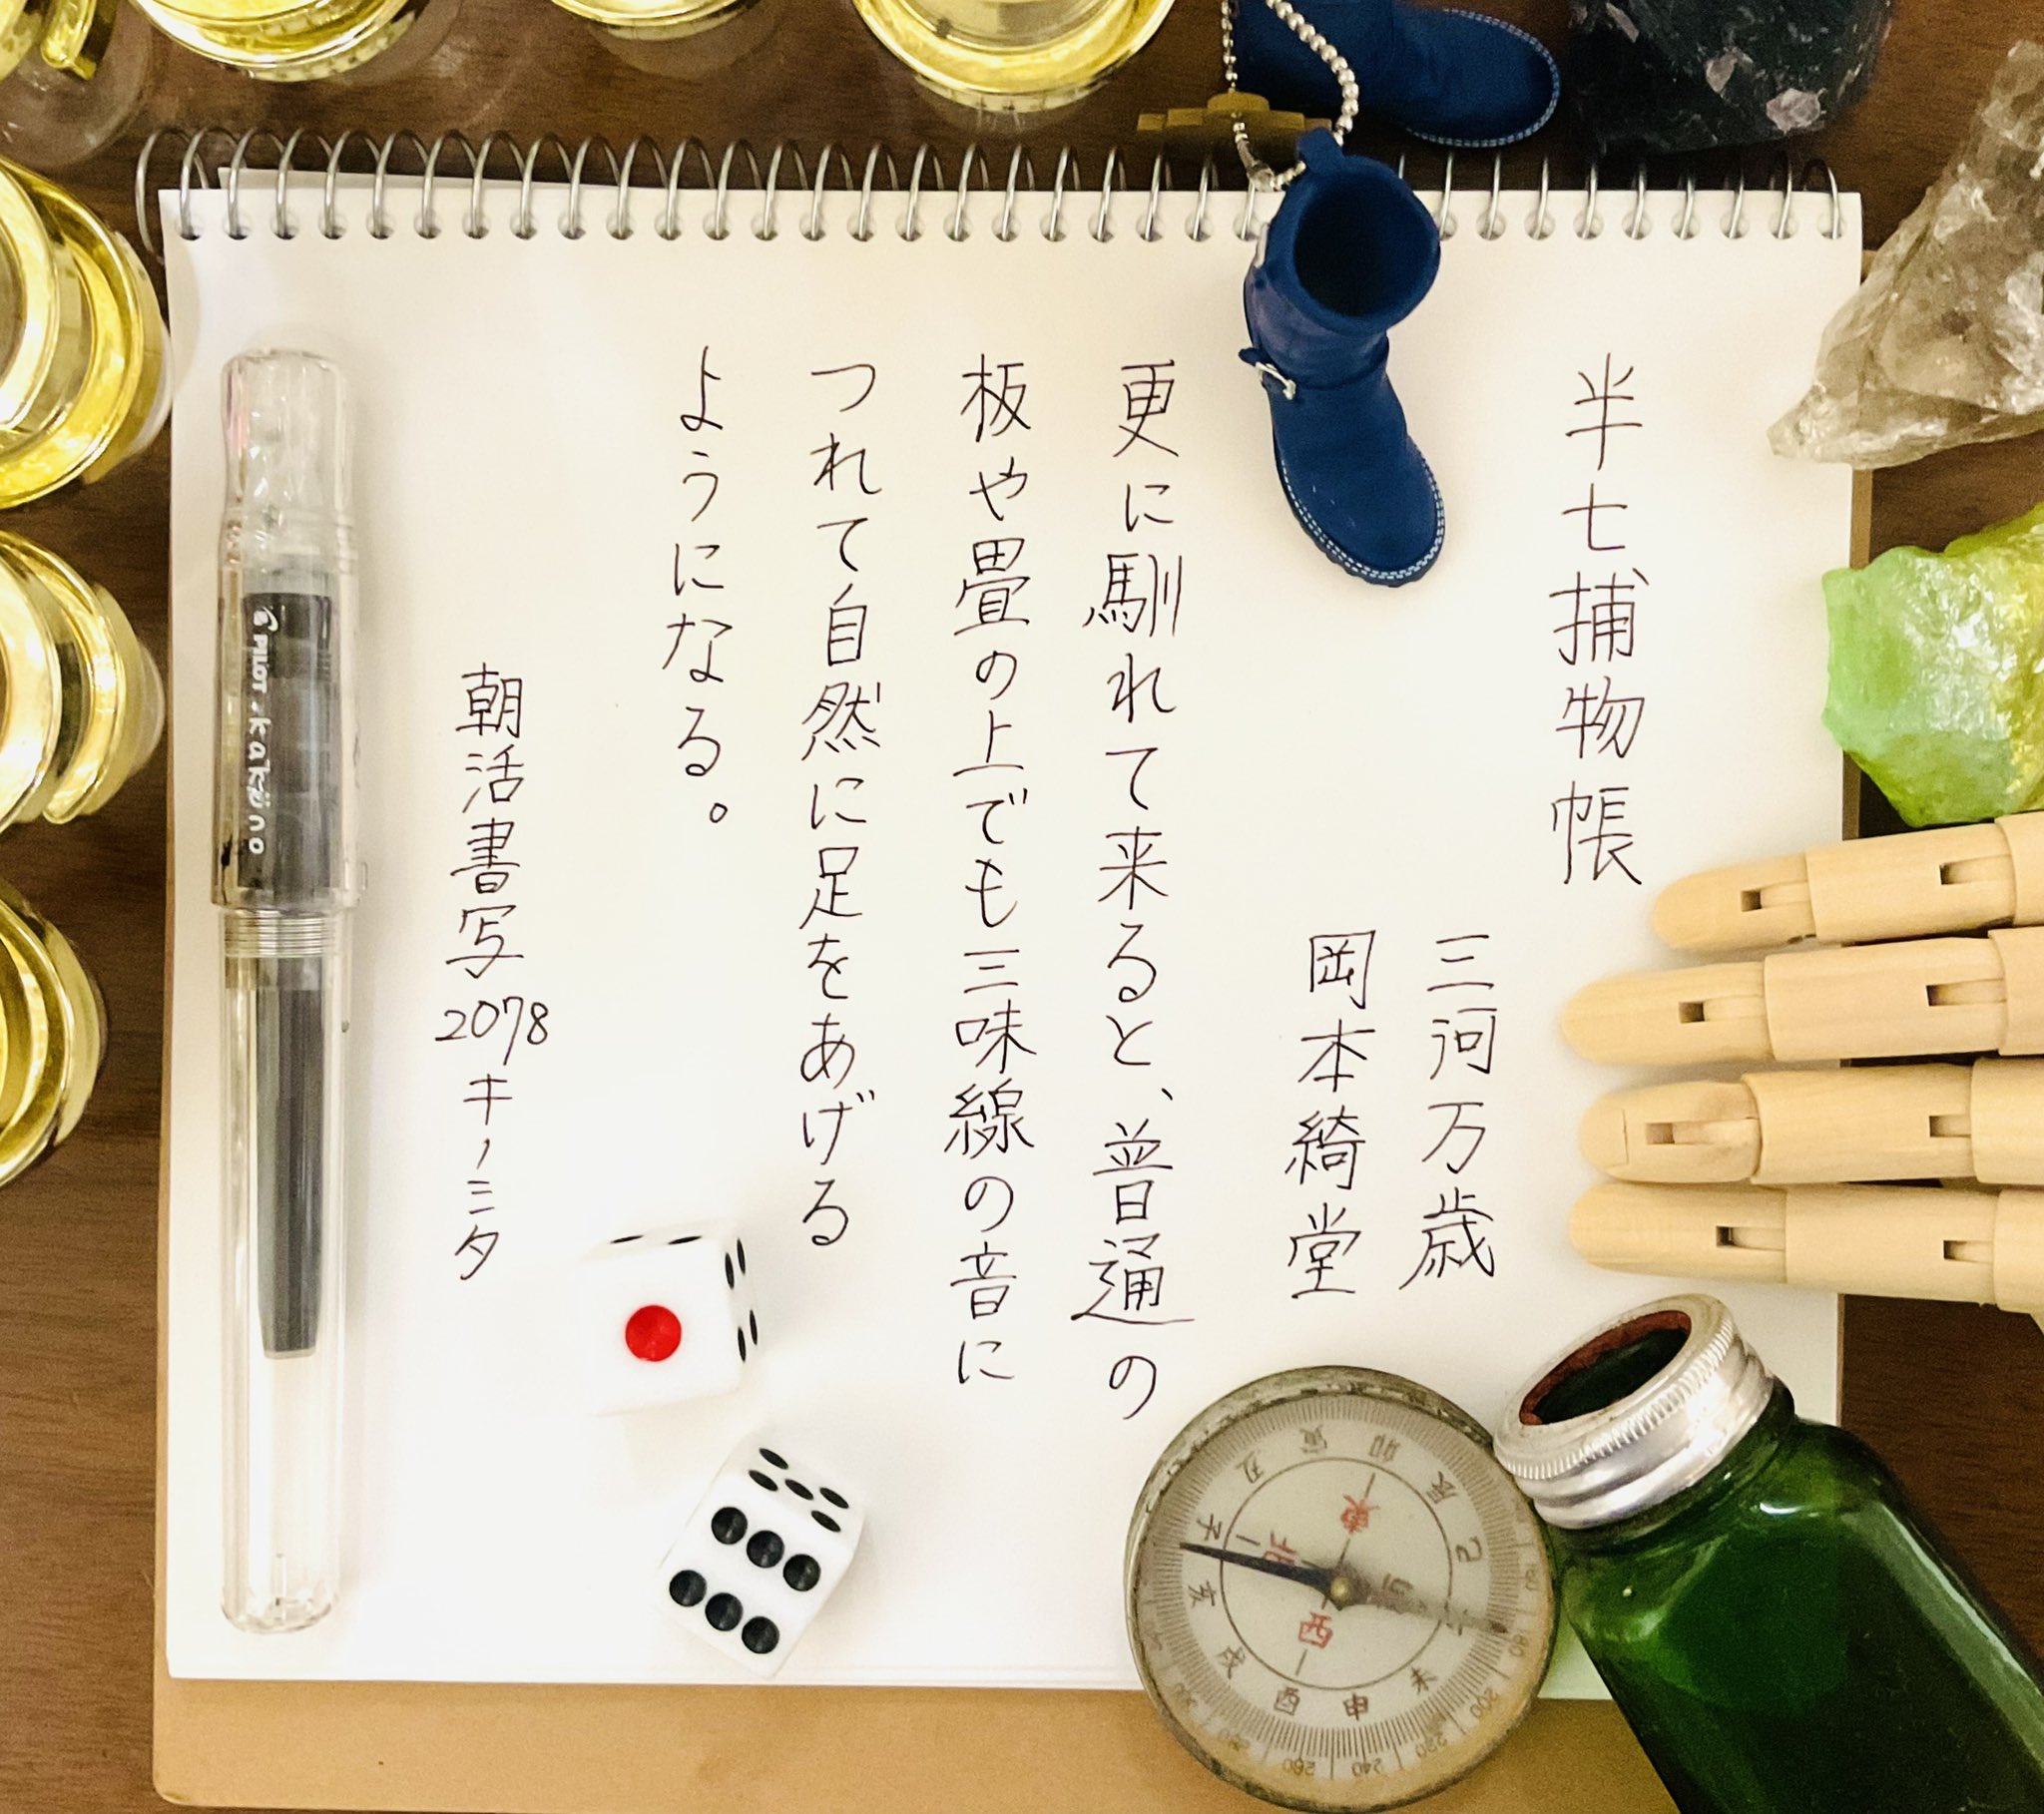 半七捕物帳
三河万歳
岡本綺堂
更に馴れて来ると、普通の
板や畳の上でも三味線の音に
つれて自然に足をあげる
ようになる。
朝活書写2078キノミタ
PILOT・kaküno
子
丑
寅
卯
辰
巳
未
申
酉
戌
亥
北
東
西
200
220
240
260